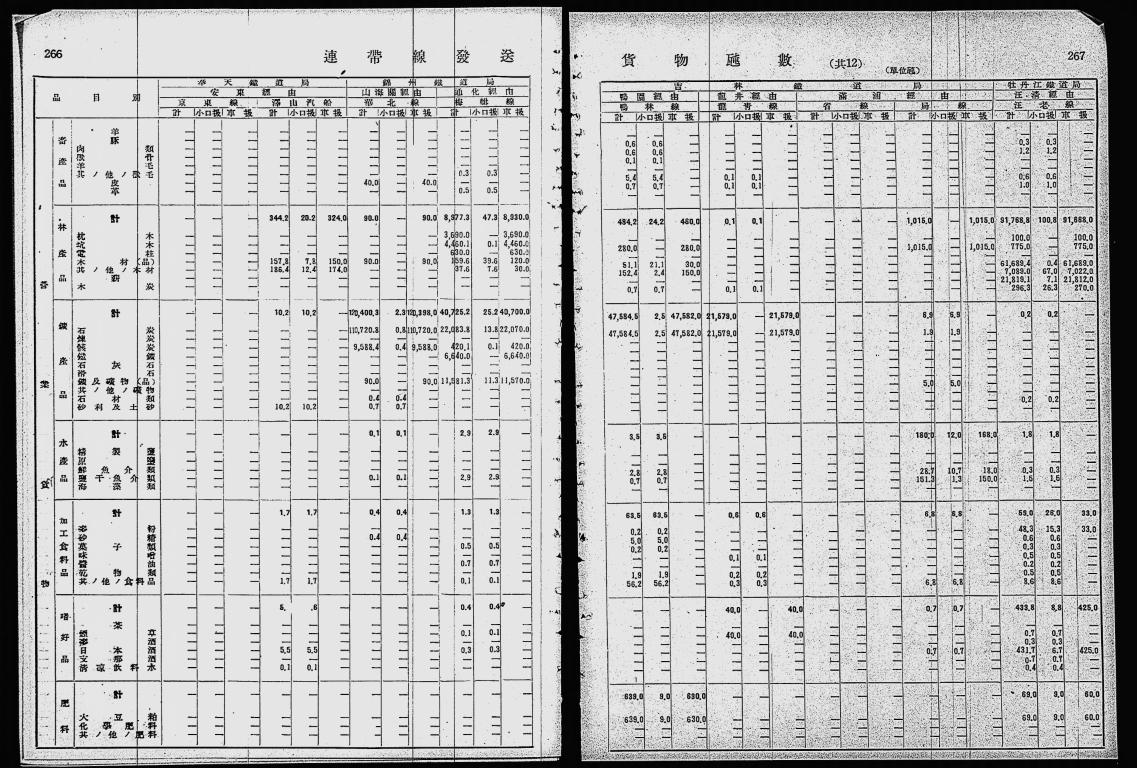 266
連帶線發送
奉天鐵道局 錦州鐵道局
安東經由 山海關經由 通化經由
品目別 京東線 澤山汽船 華北線 梅輯線
計 小口扱 車扱 計 小口扱 車扱 計 小口扱 車扱 計 小口扱 車扱
羊
豚
肉類
獸骨
羊毛
其ノ他ノ獸毛 — — — — — — — — — 0.3 0.3 —
皮 — — — — — — 40.0 — 40.0 — — —
革 — — — — — — — — — 0.5 0.5 —
林產品
計 — — — 344.2 20.2 324.0 90.0 — 90.0 8,977.3 47.3 8,930.0
枕木 — — — — — — — — — 3,690.0 — 3,690.0
坑木 — — — — — — — — — 4,460.1 0.1 4,460.0
電柱 — — — — — — — — — 630.0 — 630.0
木材(品) — — — 157.8 7.8 150.0 90.0 — 90.0 159.6 39.6 120.0
其ノ他ノ木材 — — — 186.4 12.4 174.0 — — — 37.6 7.6 30.0
薪
木炭
鑛產品
計 — — — 10.2 10.2 — 120,400.3 2.3 120,398.0 40,725.2 25.2 40,700.0
石炭 — — — — — — 110,720.8 0.8 110,720.0 22,083.8 13.8 22,070.0
煉炭
骸炭 — — — — — — 9,588.4 0.4 9,588.0 420.1 0.1 420.0
鐵鑛 — — — — — — — — — 6,640.0 — 6,640.0
石灰石
滑石
鑛及礦物(品) — — — — — — 90.0 — 90.0 11,581.3 11.3 11,570.0
其ノ他ノ礦物
石材類 — — — — — — 0.4 0.4 — — — —
砂利及土砂 — — — 10.2 10.2 — 0.7 0.7 — — — —
水產品
計 — — — — — — 0.1 0.1 — 2.9 2.9 —
精製鹽
原鹽
鮮魚介類
鹽干魚介類 — — — — — — 0.1 0.1 — 2.9 2.9 —
海藻類
加工食料品
計 — — — 1.7 1.7 — 0.4 0.4 — 1.3 1.3 —
麥粉
砂糖 — — — — — — 0.4 0.4 — — — —
菓子類 — — — — — — — — — 0.5 0.5 —
味噌
醬油 — — — — — — — — — 0.7 0.7 —
乾物類
其ノ他ノ食料品 — — — 1.7 1.7 — — — — 0.1 0.1 —
嗜好品
計 — — — 5. .6 — — — — 0.4 0.4 —
茶
煙草 — — — — — — — — — 0.1 0.1 —
麥酒
日本酒 — — — 5.5 5.5 — — — — 0.3 0.3 —
支那酒
清涼飲料水 — — — 0.1 0.1 — — — — — — —
肥料
計
大豆粕
化學肥料
其ノ他ノ肥料
貨物噸數 (共12)
(單位瓲)
267
吉林鐵道局 牡丹江鐵道局
鴨園經由 龍井經由 滿浦經由 汪清經由
鴨林線 龍青線 省線 局線 汪老線
計 小口扱 車扱 計 小口扱 車扱 計 小口扱 車扱 計 小口扱 車扱 計 小口扱 車扱
0.6 0.6 — — — — — — — — — — 0.3 0.3 —
0.6 0.6 — — — — — — — — — — 1.2 1.2 —
0.1 0.1 —
5.4 5.4 — 0.1 0.1 — — — — — — — 0.6 0.6 —
0.7 0.7 — 0.1 0.1 — — — — — — — 1.0 1.0 —
484.2 24.2 460.0 0.1 0.1 — — — — 1,015.0 — 1,015.0 91,768.8 100.8 91,668.0
100.0 — 100.0
280.0 — 280.0 — — — — — — 1,015.0 — 1,015.0 775.0 — 775.0
51.1 21.1 30.0 — — — — — — — — — 61,689.4 0.4 61,689.0
152.4 2.4 150.0 — — — — — — — — — 7,089.0 67.0 7,022.0
21,819.1 7.1 21,812.0
0.7 0.7 — 0.1 0.1 — — — — — — — 296.3 26.3 270.0
47,584.5 2.5 47,582.0 21,579.0 — 21,579.0 — — — 6.9 6.9 — 0.2 0.2 —
47,584.5 2.5 47,582.0 21,579.0 — 21,579.0 — — — 1.9 1.9 — — — —
5.0 5.0 —
0.2 0.2 —
3.5 3.5 — — — — — — — 180.0 12.0 168.0 1.8 1.8 —
2.8 2.8 — — — — — — — 28.7 10.7 18.0 0.3 0.3 —
0.7 0.7 — — — — — — — 151.3 1.3 150.0 1.5 1.5 —
63.5 63.5 — 0.6 0.6 — — — — 6.8 6.8 — 59.0 26.0 33.0
0.2 0.2 — — — — — — — — — — 48.3 15.3 33.0
5.0 5.0 — — — — — — — — — — 0.6 0.6 —
0.2 0.2 — — — — — — — — — — 0.3 0.3 —
— — — 0.1 0.1 — — — — — — — 0.5 0.5 —
0.2 0.2 —
1.9 1.9 — 0.2 0.2 — — — — — — — 0.5 0.5 —
56.2 56.2 — 0.3 0.3 — — — — 6.8 6.8 — 8.6 8.6 —
— — — 40.0 — 40.0 — — — 0.7 0.7 — 433.8 8.8 425.0
— — — 40.0 — 40.0 — — — — — — 0.7 0.7 —
0.3 0.3 —
— — — — — — — — — 0.7 0.7 — 431.7 6.7 425.0
0.7 0.7 —
0.4 0.4 —
639.0 9.0 630.0 — — — — — — — — — 69.0 9.0 60.0
639.0 9.0 630.0 — — — — — — — — — 69.0 9.0 60.0